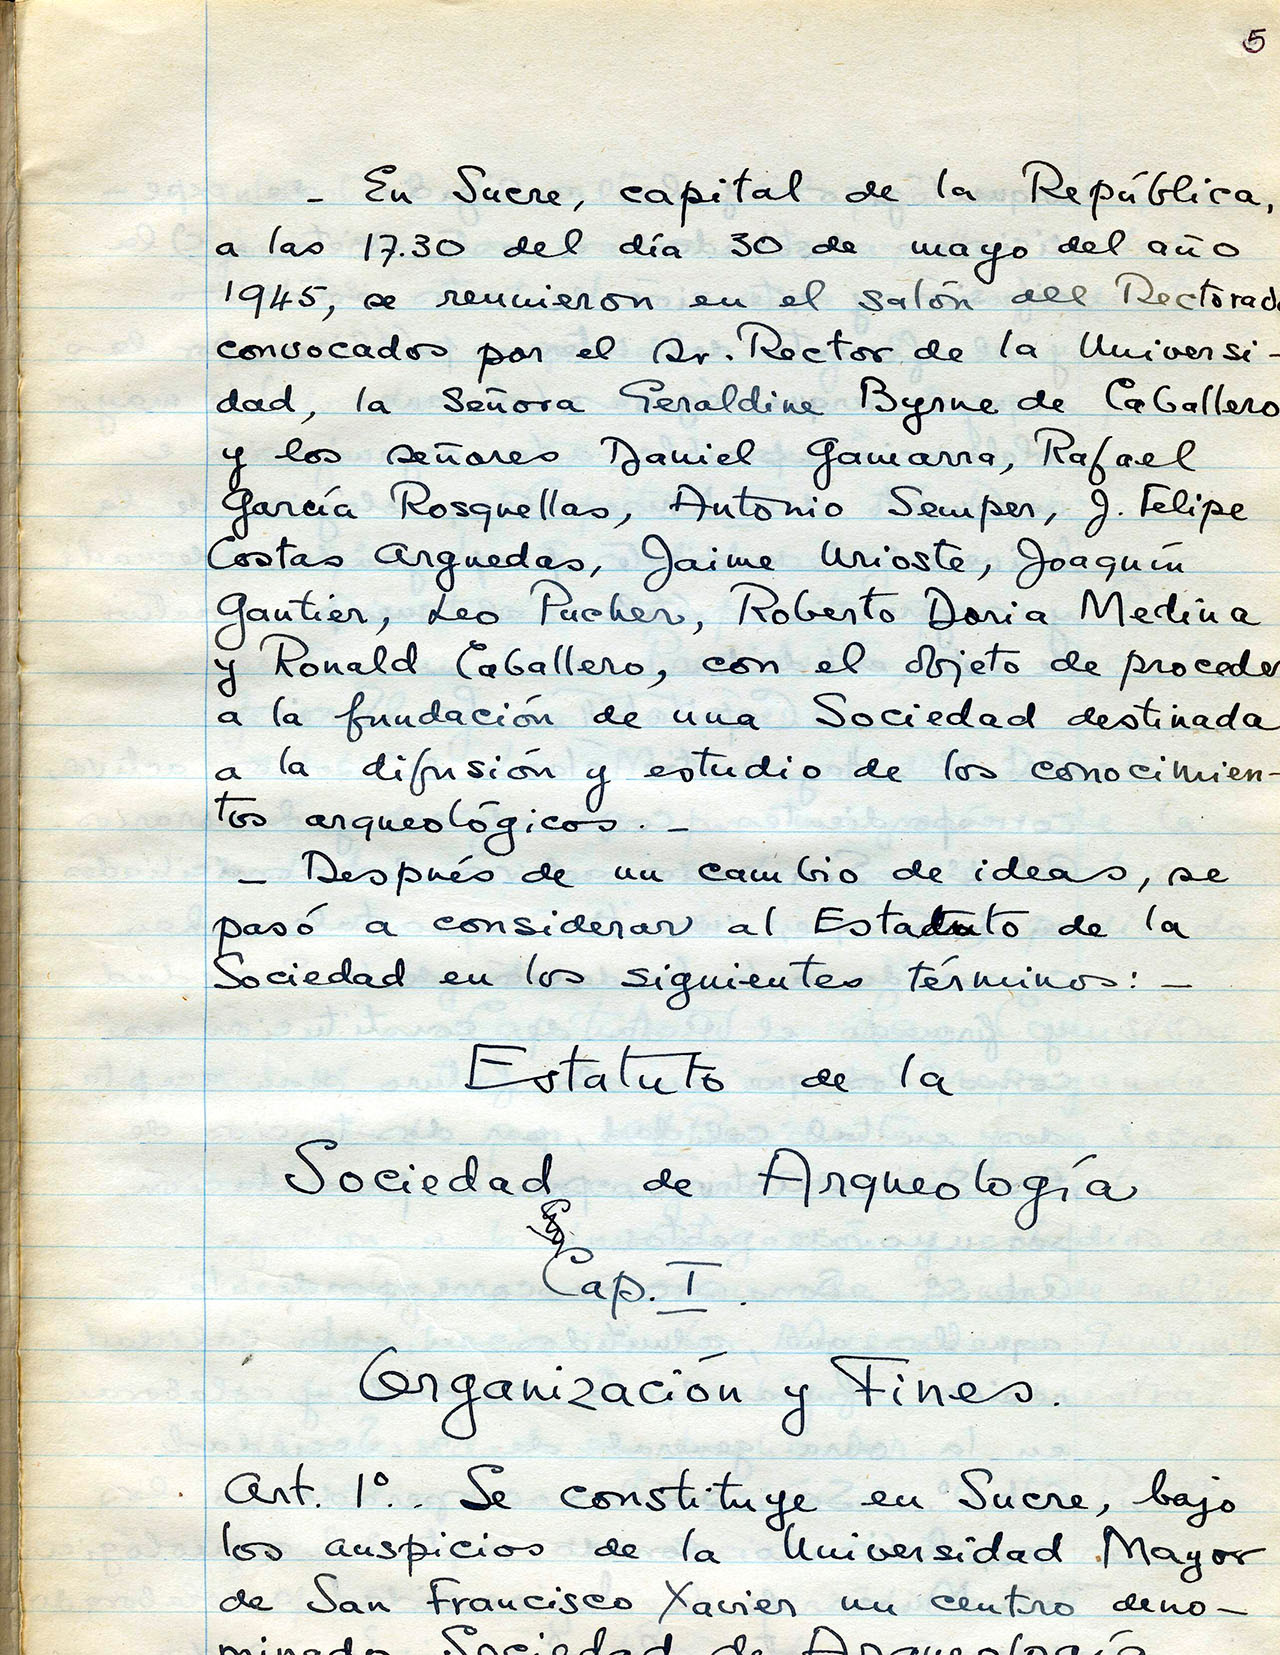 5
- En Sucre, capital de la República,
a las 17.30 del día 30 de mayo del año
1945, se reunieron en el salón del Rectorado
convocados por el Sr. Rector de la Universi-
dad, la Señora Geraldine Byrne de Caballero
y los señores Daniel Gamarra, Rafael
García Rosquellas, Antonio Semper, J. Felipe
Costas Arguedas, Jaime Urioste, Joaquín
Gantier, Leo Pucher, Roberto Doria Medina
y Ronald Caballero, con el objeto de proceder
a la fundación de una Sociedad destinada
a la difusión y estudio de los conocimien-
tos arqueológicos. -
- Después de un cambio de ideas, se
pasó a considerar al Estatuto de la
Sociedad en los siguientes términos: -
Estatuto de la
Sociedad de Arqueología
Cap. I.
Organización y Fines.
Art. 1º.. Se constituye en Sucre, bajo
los auspicios de la Universidad Mayor
de San Francisco Xavier un centro deno-
minado Sociedad de Arqueología